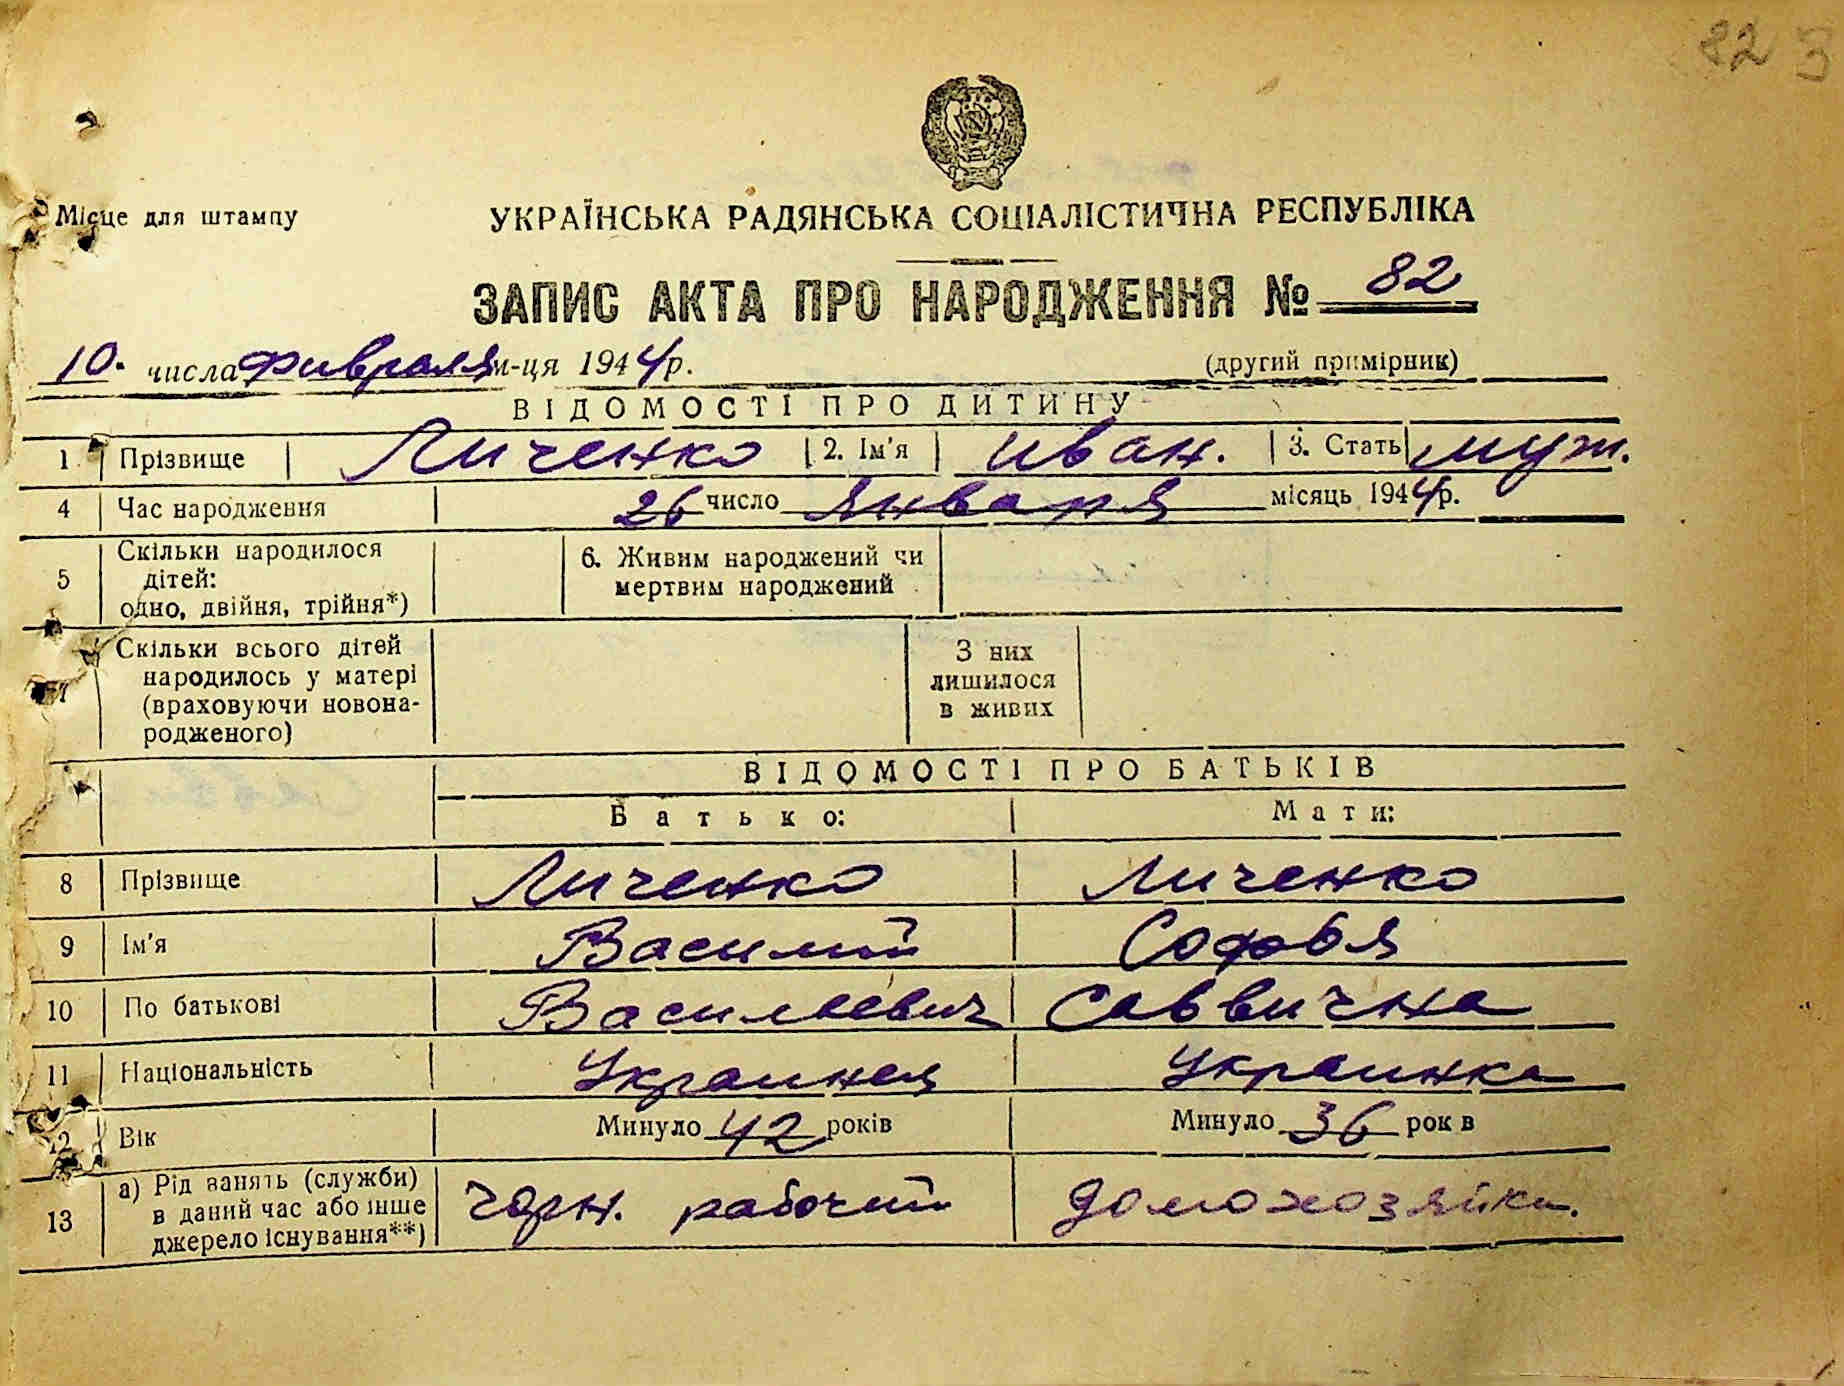 82
Місце для штампу
УКРАЇНСЬКА РАДЯНСЬКА СОЦІАЛІСТИЧНА РЕСПУБЛІКА
ЗАПИС АКТА ПРО НАРОДЖЕННЯ № 82
10. числа февраля м-ця 1944 р. (другий примірник)
ВІДОМОСТІ ПРО ДИТИНУ
1 Прізвище Личенко 2. Ім'я Иван. 3. Стать муж.
4 Час народження 26 число января місяць 1944 р.
5 Скільки народилося дітей: одно, двійня, трійня*) 6. Живим народжений чи мертвим народжений
7 Скільки всього дітей народилось у матері (враховуючи новонародженого) З них лишилося в живих
ВІДОМОСТІ ПРО БАТЬКІВ
Батько: Мати:
8 Прізвище Личенко Личенко
9 Ім'я Василий Софья
10 По батькові Василевич Саввична
11 Національність Украинец Украинка
12 Вік Минуло 42 років Минуло 36 рок в
13 а) Рід занять (служби) в даний час або інше джерело існування**) чорн. рабочий домохозяйка.